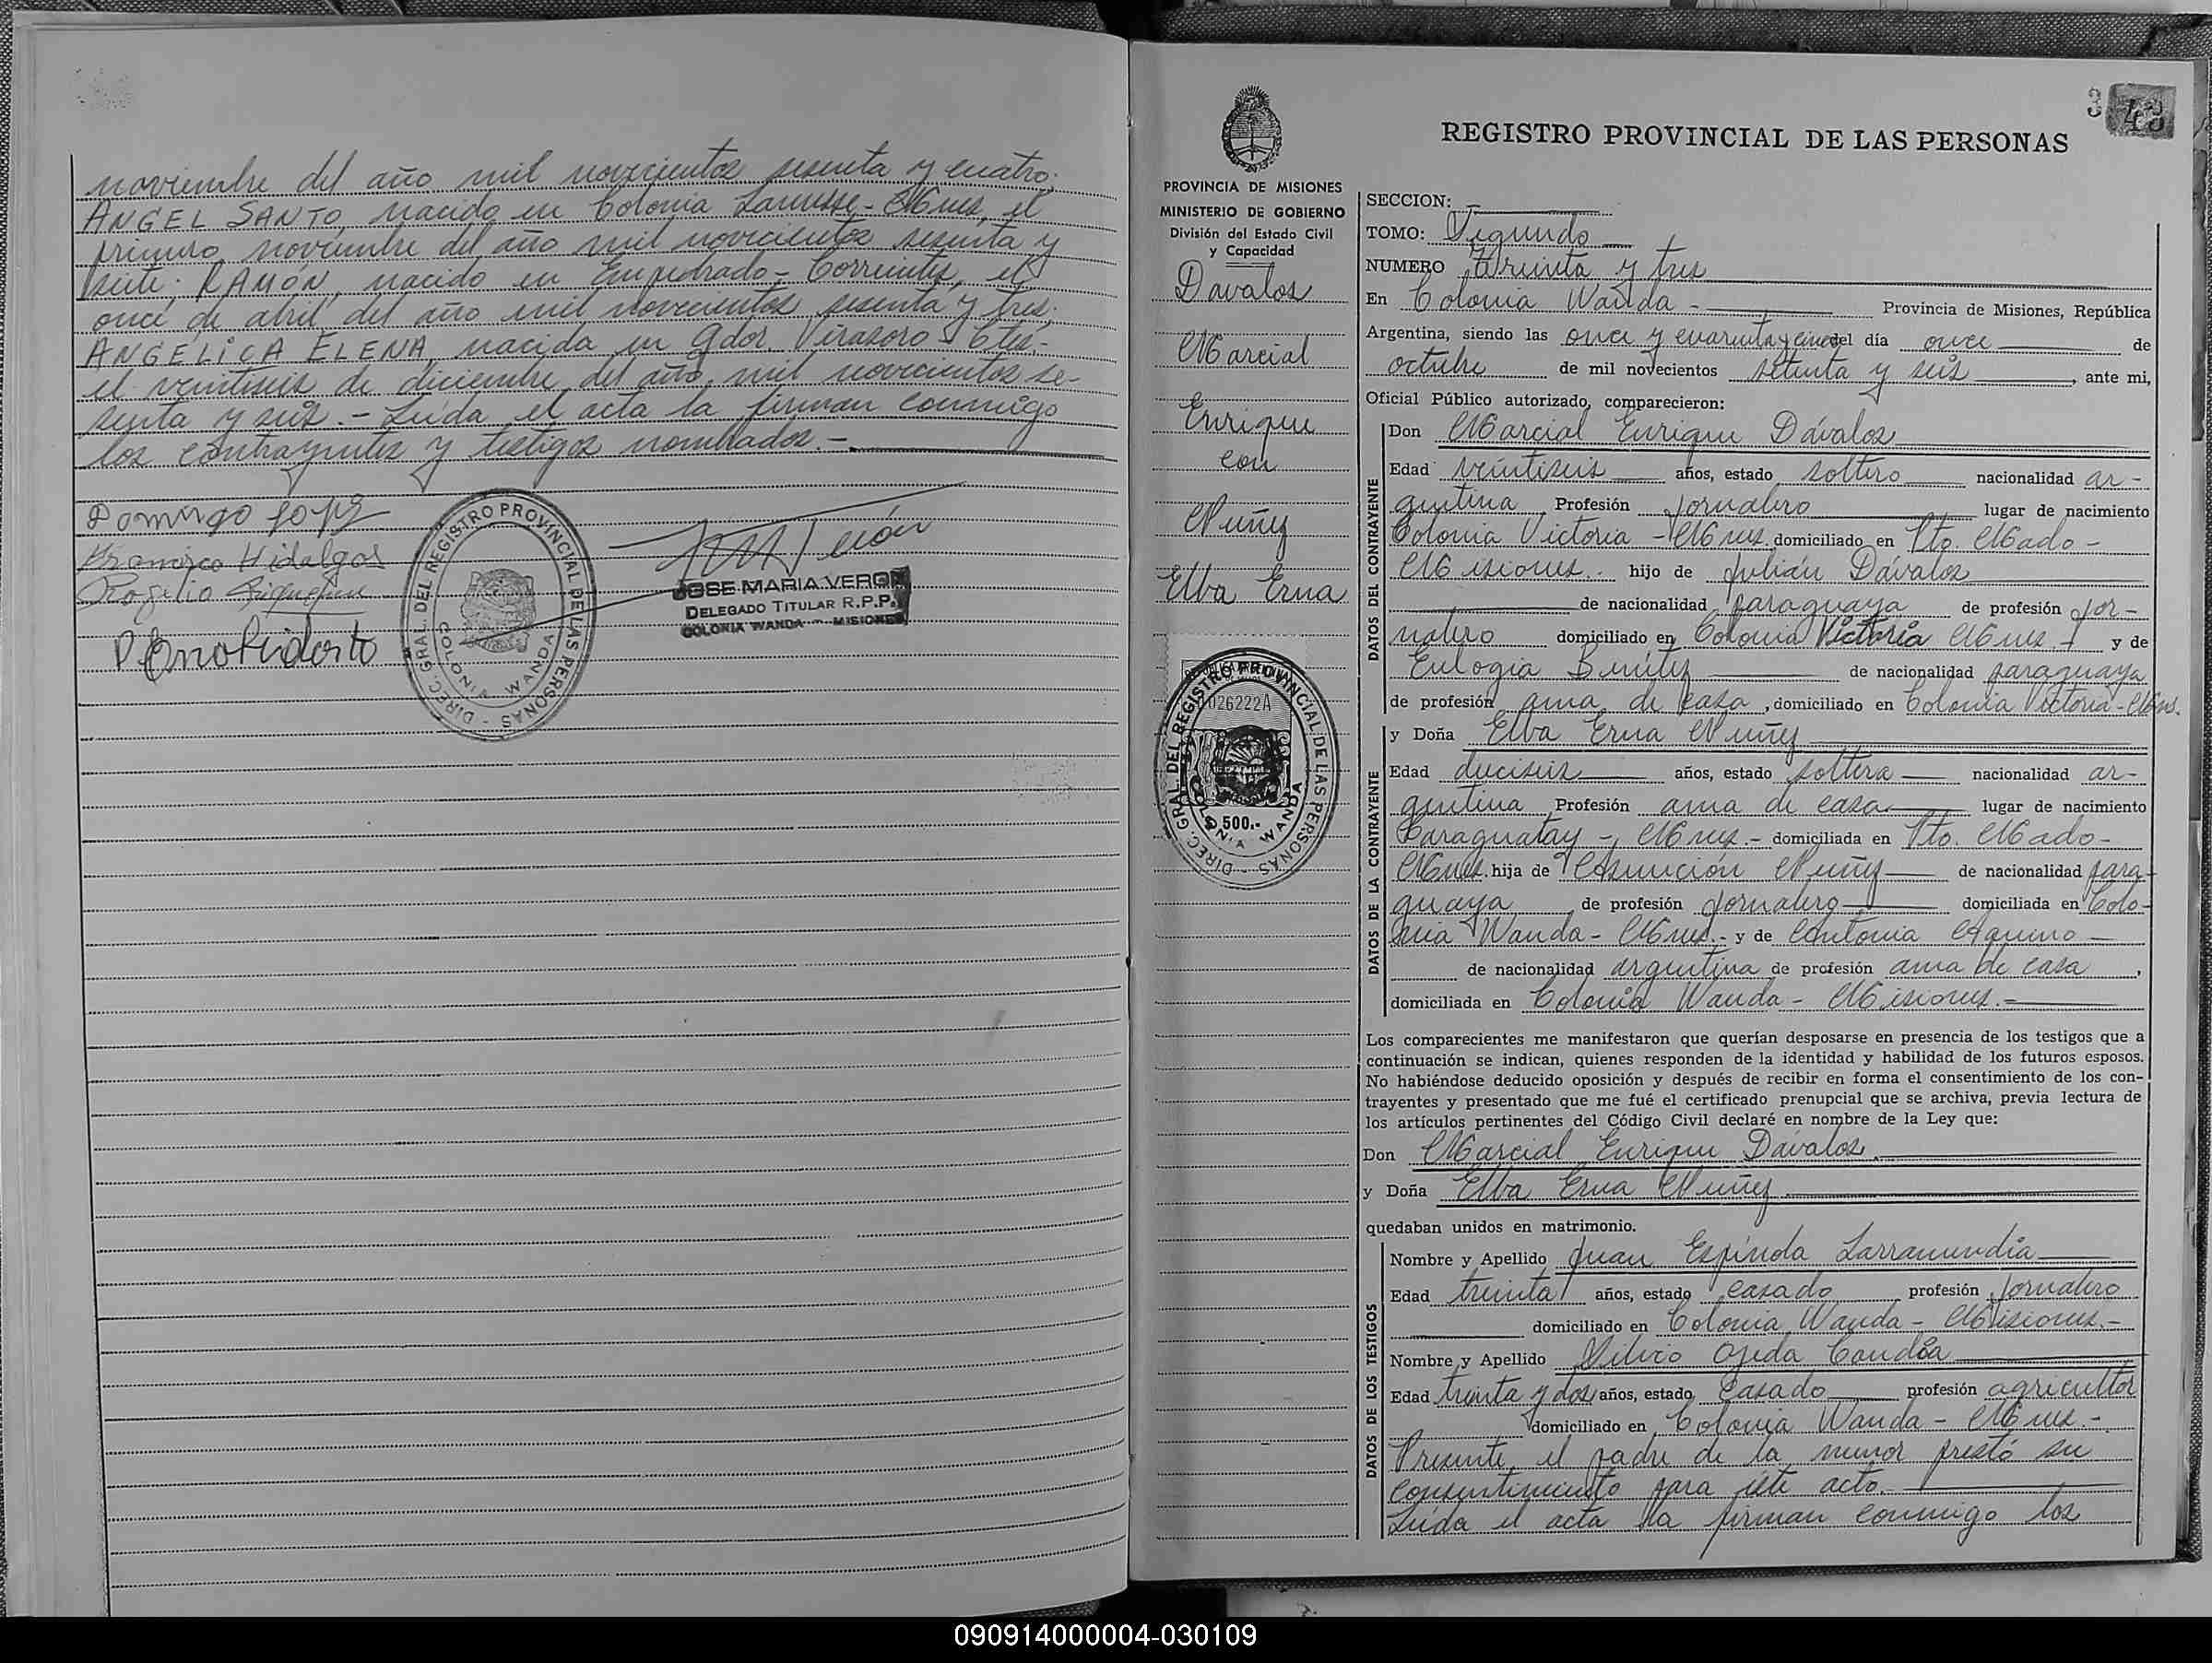 noviembre del año mil novecientos sesenta y cuatro;
ANGEL SANTO, nacido en Colonia Lanusse - Mnes, el
primero noviembre del año mil novecientos sesenta y
siete; RAMÓN, nacido en Empedrado - Corrientes, el
once de abril del año mil novecientos sesenta y tres;
ANGELICA ELENA, nacida en Gdor. Virasoro - Ctes.-
el veintiseis de diciembre del año mil novecientos se-
senta y seis. - Leída el acta la firman conmigo
los contrayentes y testigos nombrados. -
Domingo
Francisco Hidalgo
Rogelio
DIREC. GRAL. DEL REGISTRO PROVINCIAL DE LAS PERSONAS - COLONIA WANDA
JOSE MARIA VERON
DELEGADO TITULAR R.P.P.
COLONIA WANDA - MISIONES
3 43
REGISTRO PROVINCIAL DE LAS PERSONAS
PROVINCIA DE MISIONES
MINISTERIO DE GOBIERNO
División del Estado Civil
y Capacidad
Davalos
Marcial
Enrique
con
Nuñez
Elba Erna
026222A
500.-
DIREC. GRAL. DEL REGISTRO PROVINCIAL DE LAS PERSONAS - COLONIA WANDA
SECCION:
TOMO: Segundo
NUMERO Treinta y tres
En Colonia Wanda - Provincia de Misiones, República
Argentina, siendo las once y cuarenta y cinco del día once de
octubre de mil novecientos setenta y seis, ante mi,
Oficial Público autorizado, comparecieron:
DATOS DEL CONTRAYENTE
Don Marcial Enrique Dávalos
Edad veintiseis años, estado soltero nacionalidad ar-
gentina Profesión Jornalero lugar de nacimiento
Colonia Victoria - Mnes. domiciliado en Pto. Mado -
Misiones.- hijo de Julián Dávalos
de nacionalidad paraguaya de profesión jor-
nalero domiciliado en Colonia Victoria Mnes. y de
Eulogia Benítez de nacionalidad paraguaya
de profesión ama de casa, domiciliado en Colonia Victoria - Mns.
DATOS DE LA CONTRAYENTE
y Doña Elba Erna Nuñez
Edad dieciseis años, estado soltera nacionalidad ar-
gentina Profesión ama de casa lugar de nacimiento
Caraguatay - Mnes.- domiciliada en Pto. Mado -
Mnes. hija de Asunción Nuñez de nacionalidad para-
guaya de profesión jornalero domiciliada en Colo-
nia Wanda - Mnes.- y de Antonia Aquino
de nacionalidad argentina de profesión ama de casa,
domiciliada en Colonia Wanda - Misiones.-
Los comparecientes me manifestaron que querían desposarse en presencia de los testigos que a
continuación se indican, quienes responden de la identidad y habilidad de los futuros esposos.
No habiéndose deducido oposición y después de recibir en forma el consentimiento de los con-
trayentes y presentado que me fué el certificado prenupcial que se archiva, previa lectura de
los artículos pertinentes del Código Civil declaré en nombre de la Ley que:
Don Marcial Enrique Dávalos
y Doña Elba Erna Nuñez
quedaban unidos en matrimonio.
DATOS DE LOS TESTIGOS
Nombre y Apellido Juan Espínola Larramendia
Edad treinta años, estado casado profesión Jornalero
domiciliado en Colonia Wanda - Misiones.-
Nombre y Apellido Silvio Ojeda Candia
Edad treinta y dos años, estado casado profesión agricultor
domiciliado en Colonia Wanda - Mnes.-
Presente el padre de la menor prestó su
consentimiento para este acto.-
Leída el acta la firman conmigo los
090914000004-030109